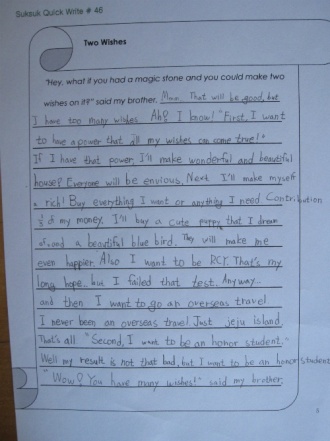 Suksuk Quick Write # 46
Two Wishes
"Hey, what if you had a magic stone and you could make two
wishes on it?" said my brother. Mmm. That will be good, but
I have too many wishes. Ah? I know! "First, I want
to have a power that all my wishes can come true!"
If I have that power, I'll make wonderful and beautiful
house? Everyone will be envious. Next I'll make myself
a rich! Buy everything I want or anything I need Contribution
1/3 of my money. I'll buy a cute puppy that I dream
of, and a beautiful blue bird. They will make me
even happier. Also I want to be RCY. That's my
long hope.. but I failed that test. Anyway..
and then I want to go an overseas travel
I never been an overseas travel. Just jeju island.
That's all "Second, I want to be an honor student."
Well my result is not that bad, but I want to be an honor student
"Wow? You have many wishes!" said my brother.